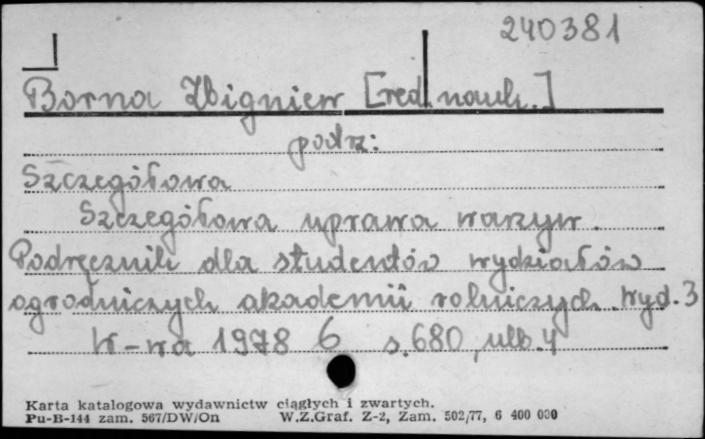 240381
Borna Zbigniew [red. nauk.]
patrz:
Szczegółowa
Szczegółowa uprawa warzyw.
Podręcznik dla studentów wydziałów
ogrodniczych akademii rolniczych. Wyd. 3
W-wa 1978 6 s. 680, ulb. 4
Karta katalogowa wydawnictw ciągłych i zwartych.
Pu-B-144 zam. 567/DW/On W.Z.Graf. Z-2, Zam. 502/77, 6 400 000